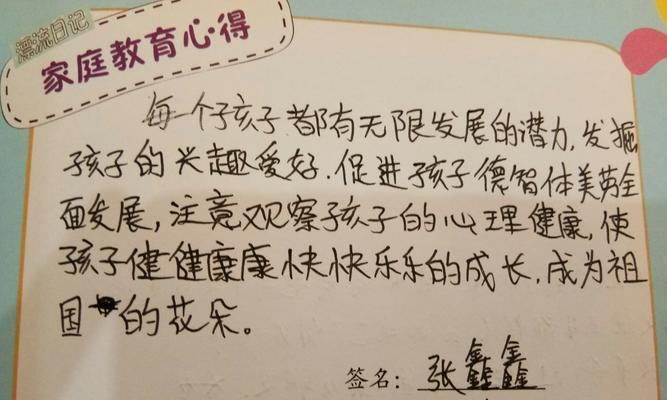 漂流日记
家庭教育心得
每个孩子都有无限发展的潜力,发掘
孩子的兴趣爱好.促进孩子德智体美劳全
面发展,注意观察孩子的心理健康,使
孩子健健康康快快乐乐的成长,成为祖
国的花朵。
签名:张鑫鑫